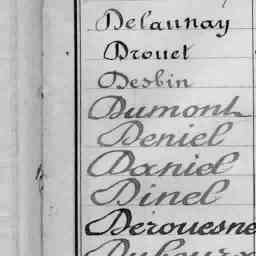 Delaunay
Drouet
Desbin
Dumont
Deniel
Daniel
Dinel
Derouesne